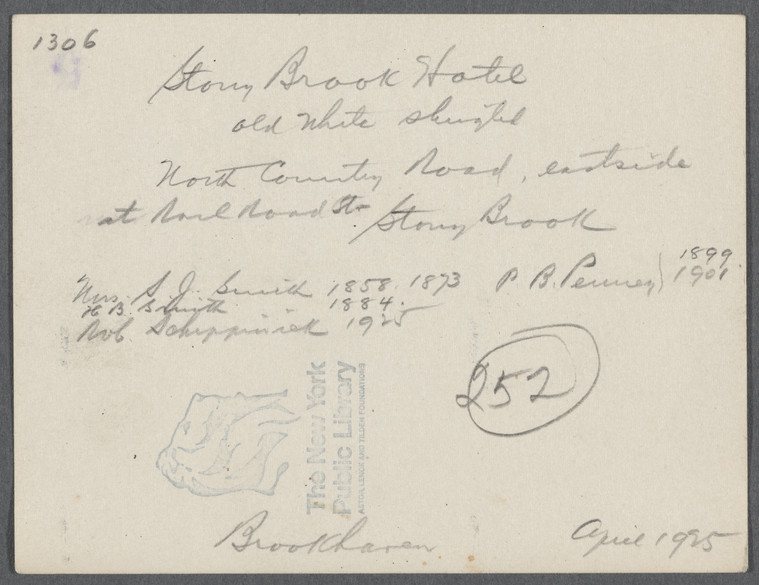 1306
Stony Brook Hotel
old White shingled
North Country Road, eastside
at Rail Road St- Stony Brook
Mrs. S. J. Smith 1858. 1873 P B. Penney } 1899
1901
H B. Smith 1884.
Rob 1925
252
The New York
Public Library
ASTOR, LENOX AND TILDEN FOUNDATIONS
Brookhaven
April 1925